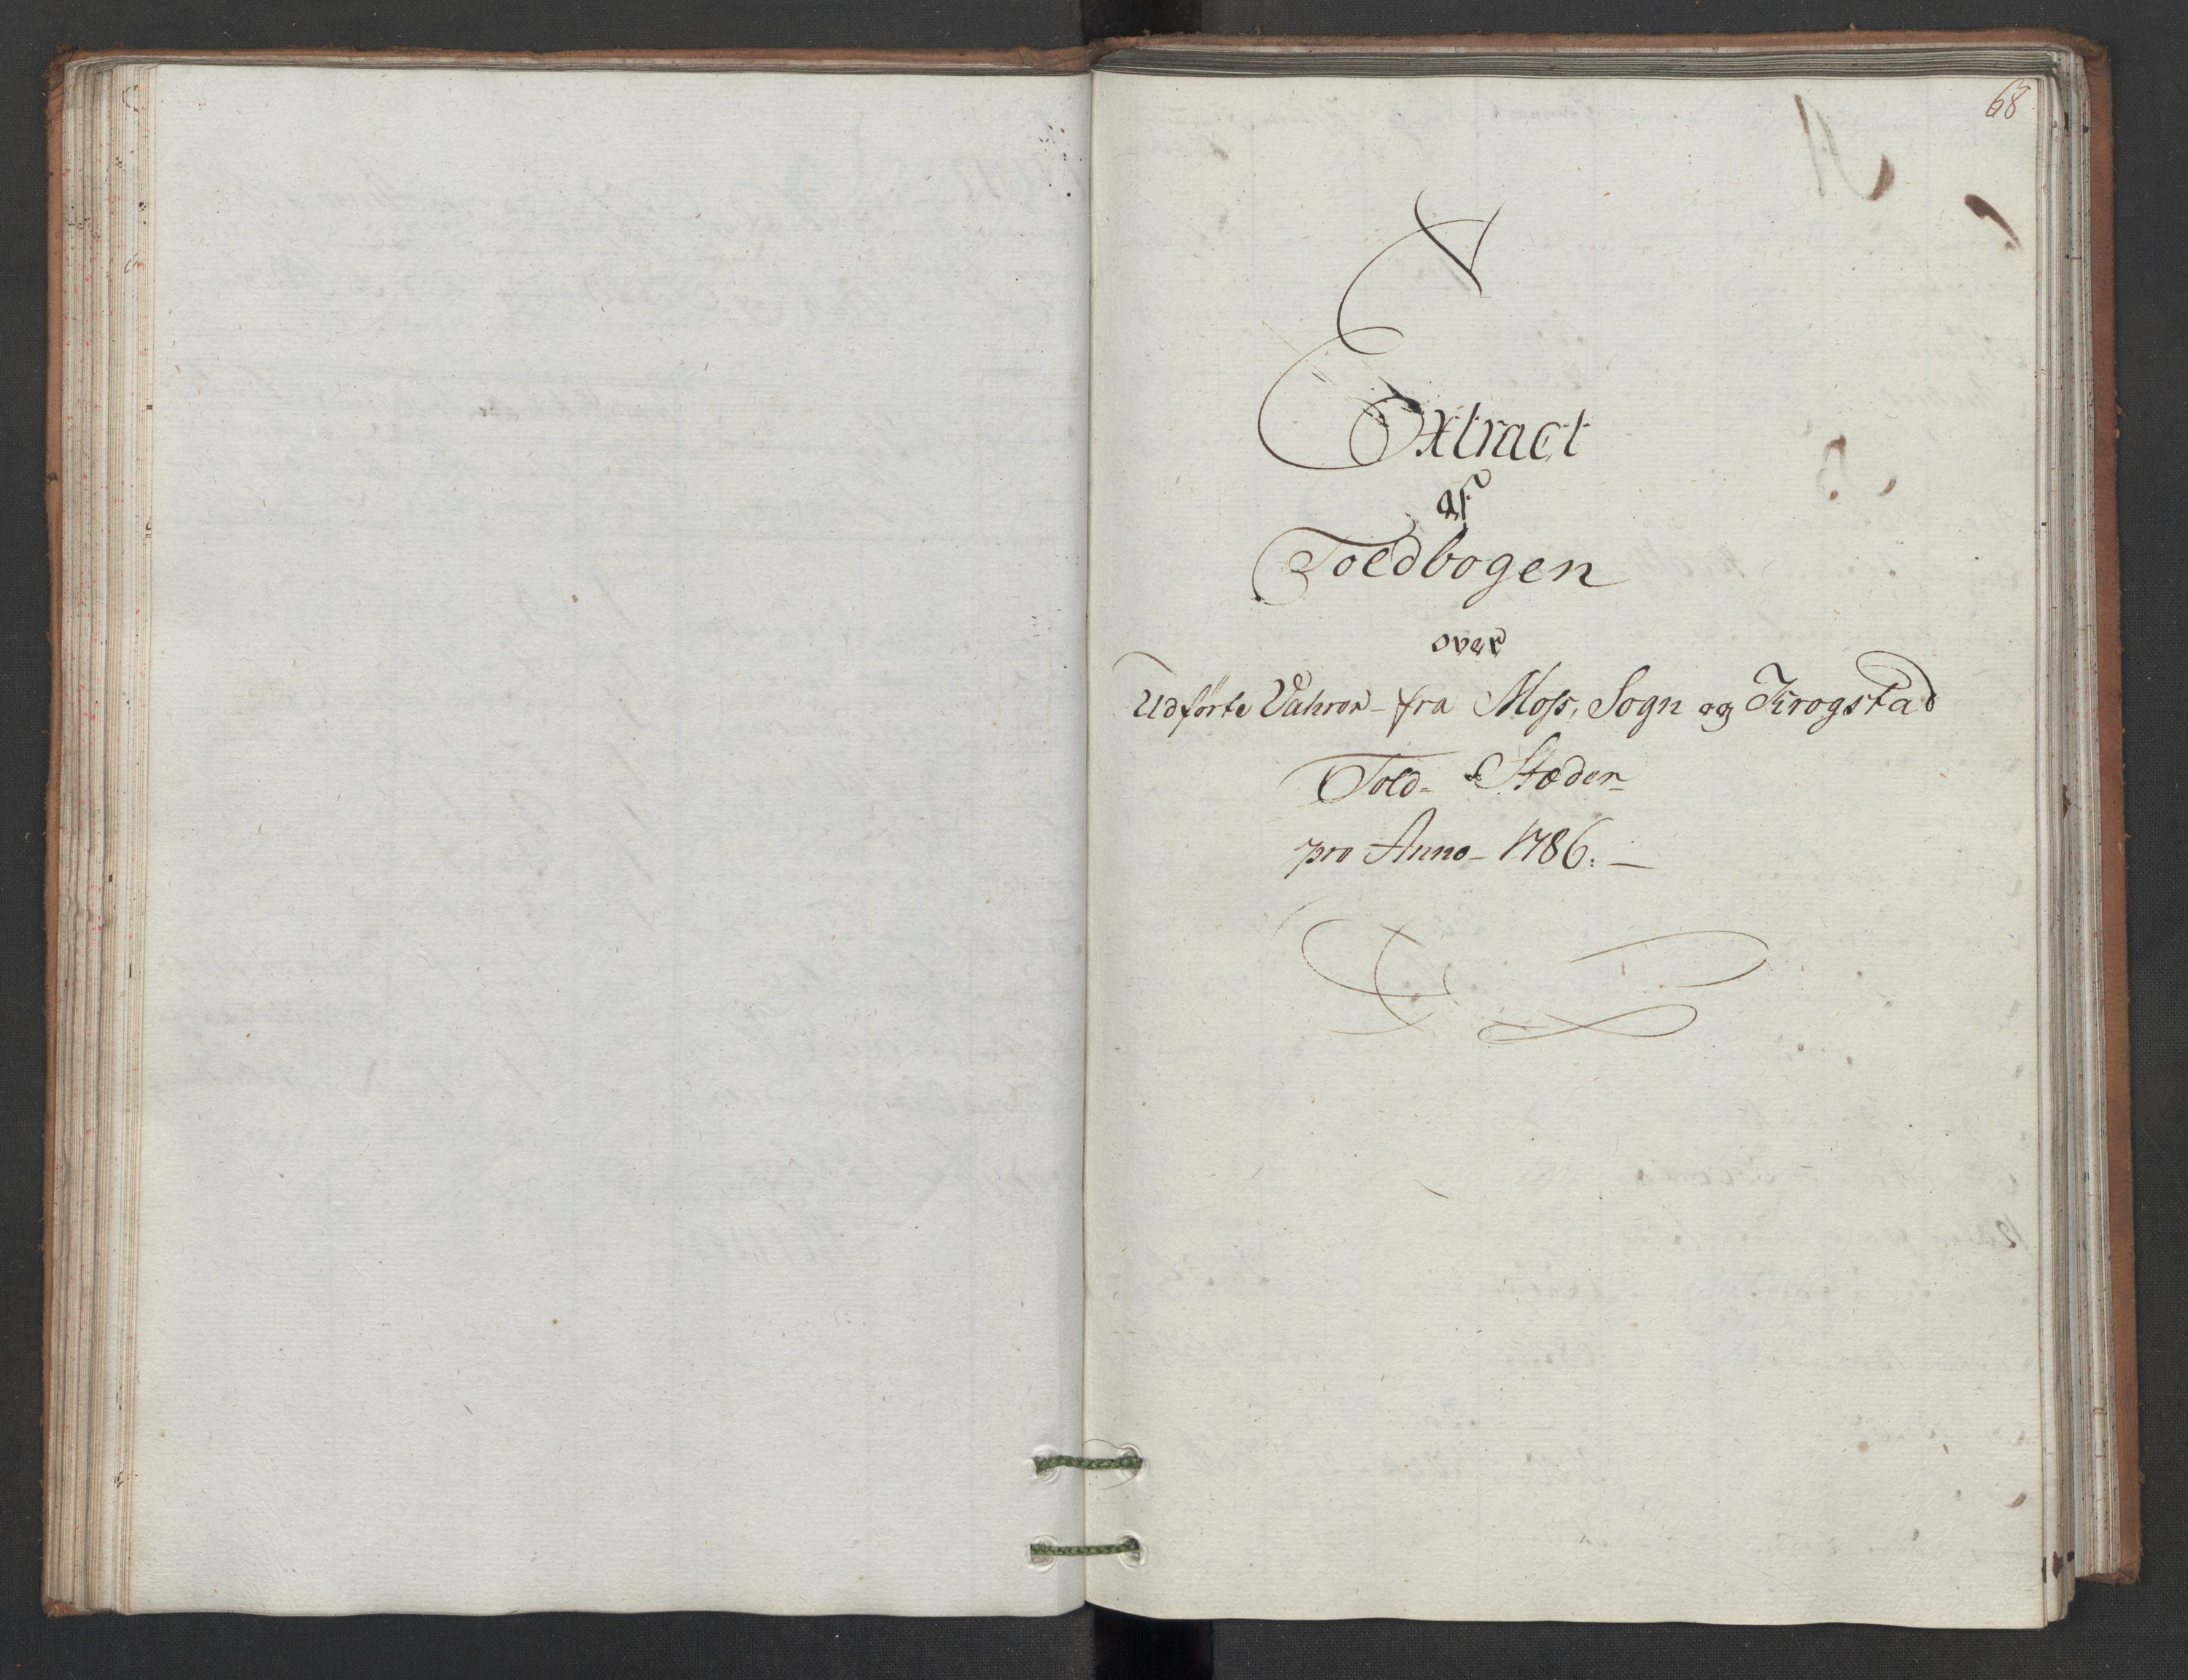 68
Extract
af
Toldbogen
over
Udførte Vahrer fra Moss, Sogn og Krogstad
Told- Stæder
pro Anno- 1786. —